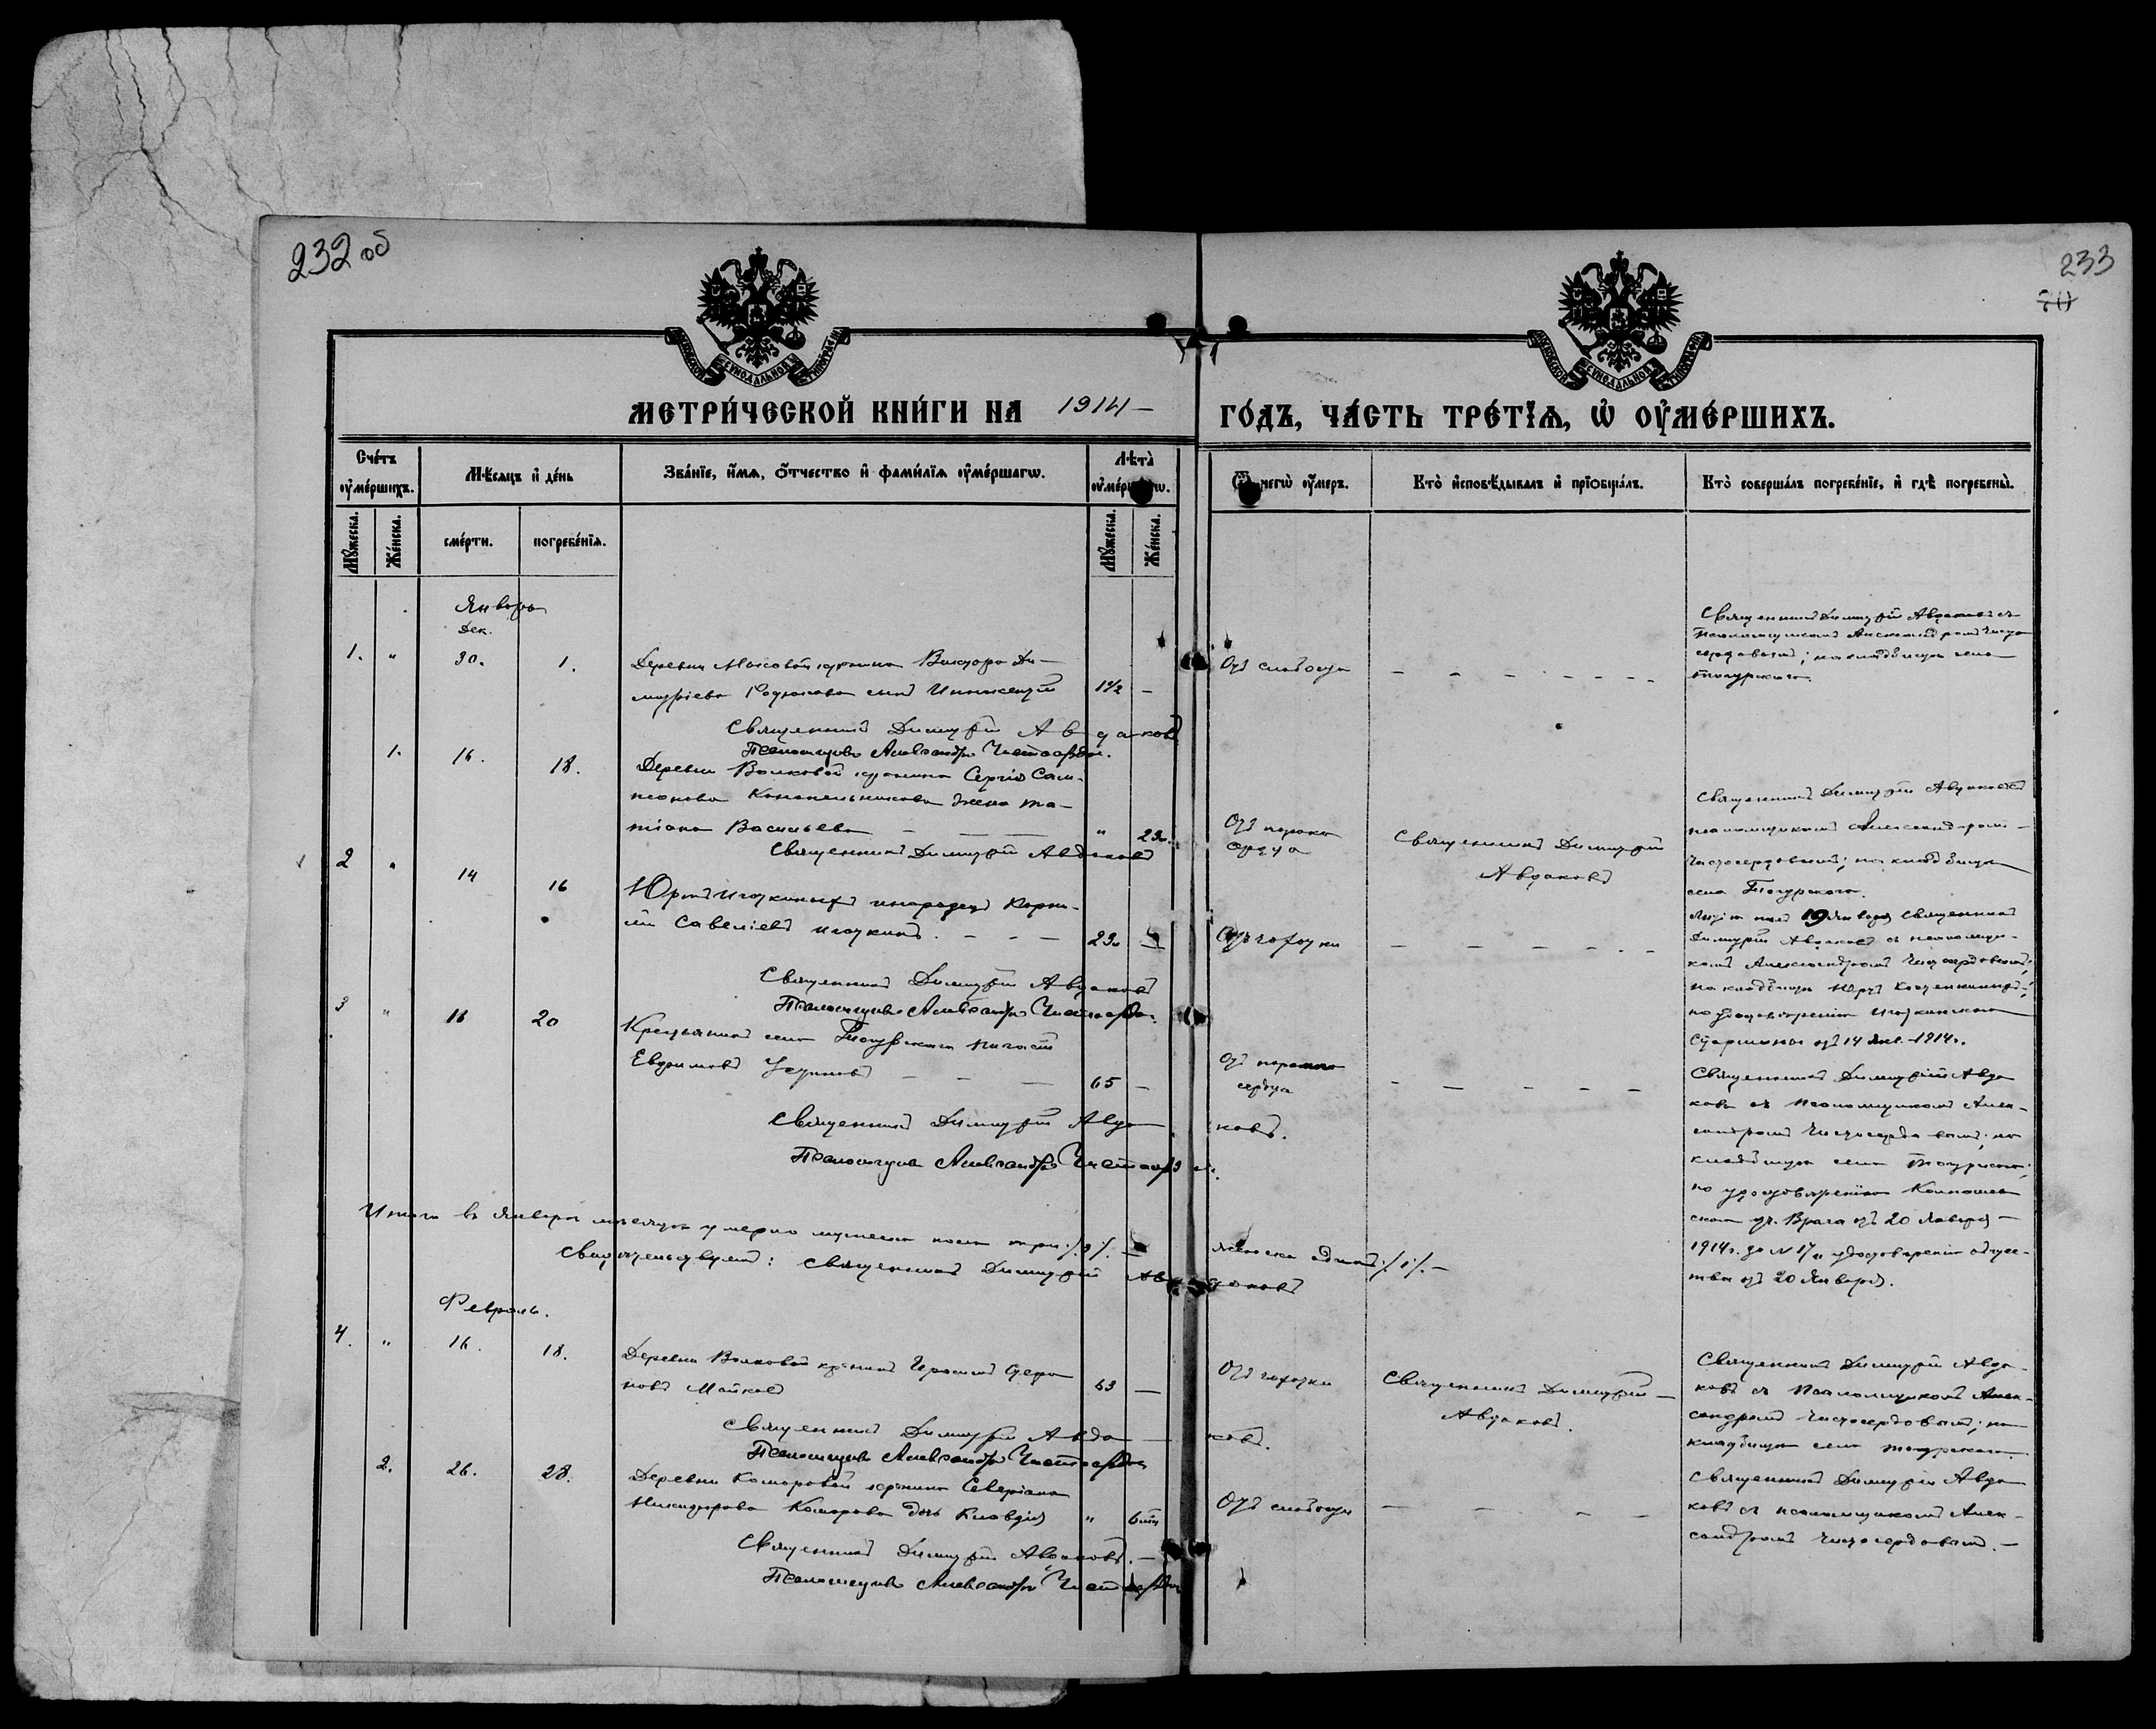 232 об
233
70
МОСКОВСКОЙ СѴНОДАЛЬНОЙ ТИПОГРАФІИ
МОСКОВСКОЙ СѴНОДАЛЬНОЙ ТИПОГРАФІИ
МЕТРИ́ЧЕСКОЙ КНИ́ГИ НА 1914 —
ГО́ДЪ, ЧА́СТЬ ТРЕ́ТЇѦ, Ѡ҆ ОУ҆МЕ́РШИХЪ.
Сче́тъ оу҆ме́ршихъ.
Мѣ́сяцъ и҆ де́нь
Зва́нїе, и҆́мя, ѻ҆́тчество и҆ фами́лїя оу҆ме́ршагѡ.
Лѣ́та оу҆ме́ршагѡ.
Ѿ чегѡ̀ оу҆́меръ.
Кто̀ и҆сповѣ́дывалъ и҆ прїѡбща́лъ.
Кто̀ соверша́лъ погребе́нїе, и҆ гдѣ̀ погребены̀.
Му́жеска.
Же́нска.
сме́рти.
погребе́нїя.
Му́жеска.
Же́нска.
Январь
Дек.
1. " 30. 1.
Деревни крестьянина Виктора Ди-
митріева Родюкова сынъ Иннокентій 1½ —
Отъ слабости
Священникъ Димитрій Авдаковъ съ
Псаломщикомъ Александромъ Чисто-
сердовымъ; на кладбищѣ села
Тогурскаго.
Священникъ Димитрій Авдаковъ
Псаломщикъ Александръ Чистосердовъ.
1. 16. 18.
Деревни Волковой крестьянина Сергія Сам-
псонова Конопельникова жена Та-
тіана Васильева — — — " 29.
Отъ порока
сердца
Священникъ Димитрій
Авдаковъ
Священникъ Димитрій Авдаковъ съ
псаломщикомъ Александромъ —
Чистосердовымъ; на кладбищѣ
села Тогурскаго.
Священникъ Димитрій Авдаковъ
2 " 14 16
Юртъ Иготкиныхъ инородецъ Корни-
лій Савеліевъ Иготкинъ. — — — 29. —
Отъ чахотки
19 Января Священникъ
Димитрій Авдаковъ съ псаломщи-
комъ Александромъ Чистосердовымъ;
на кладбищѣ Юртъ
по удостовѣренію Иготкинскаго
Старшины отъ 14 Янв. 1914 г.
Священникъ Димитрій Авдаковъ
Псаломщикъ Александръ Чистосердовъ.
3 " 18 20
Крестьянинъ села Тогурскаго
Евдокимовъ — — — 65 —
Отъ порока
сердца
Священникъ Димитрій Авда-
ковъ съ Псаломщикомъ Алек-
сандромъ Чистосердовымъ; на
кладбищѣ села Тогурскаго;
по удостовѣренію Колпашев-
скаго уч. Врача отъ 20 Января —
1914 г. за № 17 и удостовѣренію общес-
тва отъ 20 Января.
Священникъ Димитрій Авдаковъ.
Псаломщикъ Александръ Чистосердовъ.
Итого въ Январѣ мѣсяцѣ умерло мужеска пола три ./.3./. — женска одинъ ./.1./. —
Свидѣтельствуемъ: Священникъ Димитрій Авдаковъ
Февраль.
4. " 16. 18.
Деревни Волковой кр-нинъ Герасимъ
Майковъ 63 —
Отъ чахотки
Священникъ Димитрій —
Авдаковъ.
Священникъ Димитрій Авда-
ковъ съ Псаломщикомъ Алек-
сандромъ Чистосердовымъ; на
кладбищѣ села Тогурскаго
Священникъ Димитрій Авдаковъ.
Псаломщикъ Александръ Чистосердовъ
2. 26. 28.
Деревни Коморовой кр-нина Северіана
Никифорова Коморова дочь Клавдія " 6
Отъ слабости
Священникъ Димитрій Авда-
ковъ съ псаломщикомъ Алек-
сандромъ Чистосердовымъ. —
Священникъ Димитрій Авдаковъ. —
Псаломщикъ Александръ Чистосердовъ